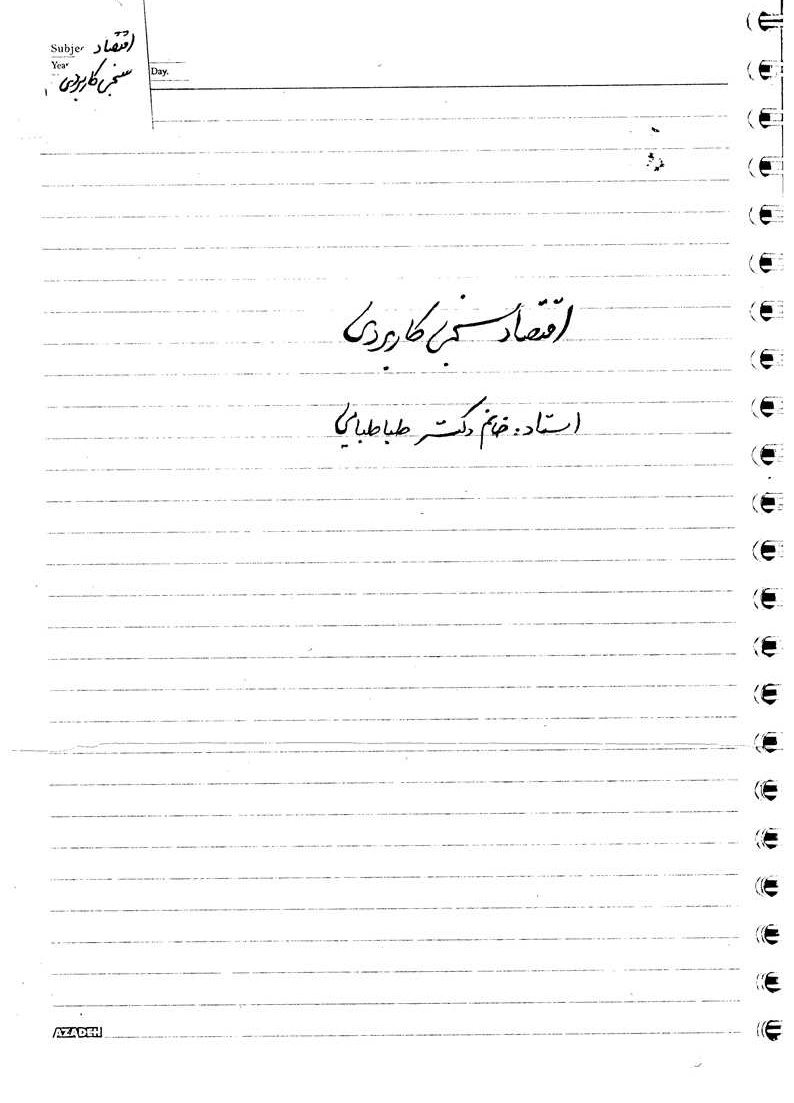 Subjec اقتصاد
Year سنجی کاربردی
Day.
اقتصادسنجی کاربردی
استاد: خانم دکتر طباطبایی
AZADEH